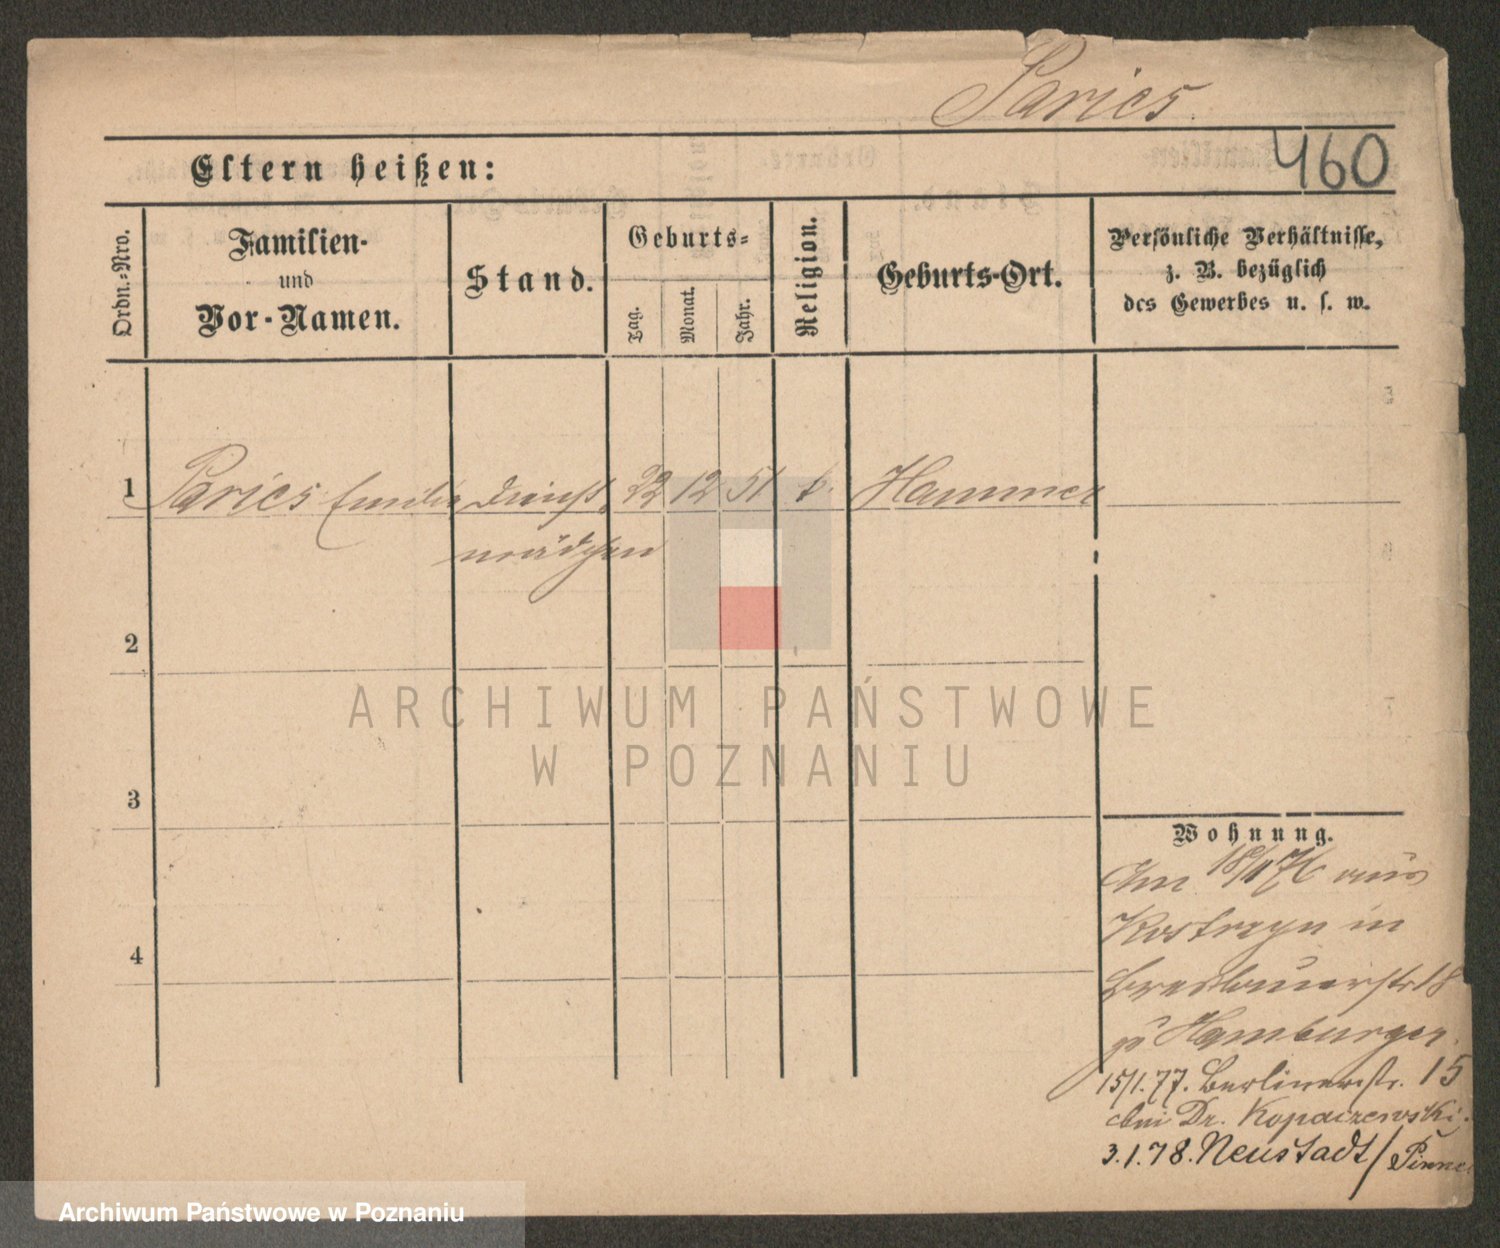 Paries.
460
Eltern heißen:
Ordn.-Nro.
Familien-
und
Vor-Namen.
Stand.
Geburts-
Tag.
Monat.
Jahr.
Religion.
Geburts-Ort.
Persönliche Verhältnisse,
z. B. bezüglich
des Gewerbes u. s. w.
1 Paries Emilie Dienst 22 12 51 k. Hammer
mädchen
2
3
4
Wohnung.
Am 18/1 76 aus
Kostrzyn in
Breslauerstr 18
zu Hamburger.
15/1.77. Berlinerstr. 15
bei Dr. Kopaczewski.
3.1.78. Neustadt / Pinne
ARCHIWUM PAŃSTWOWE
W POZNANIU
Archiwum Państwowe w Poznaniu